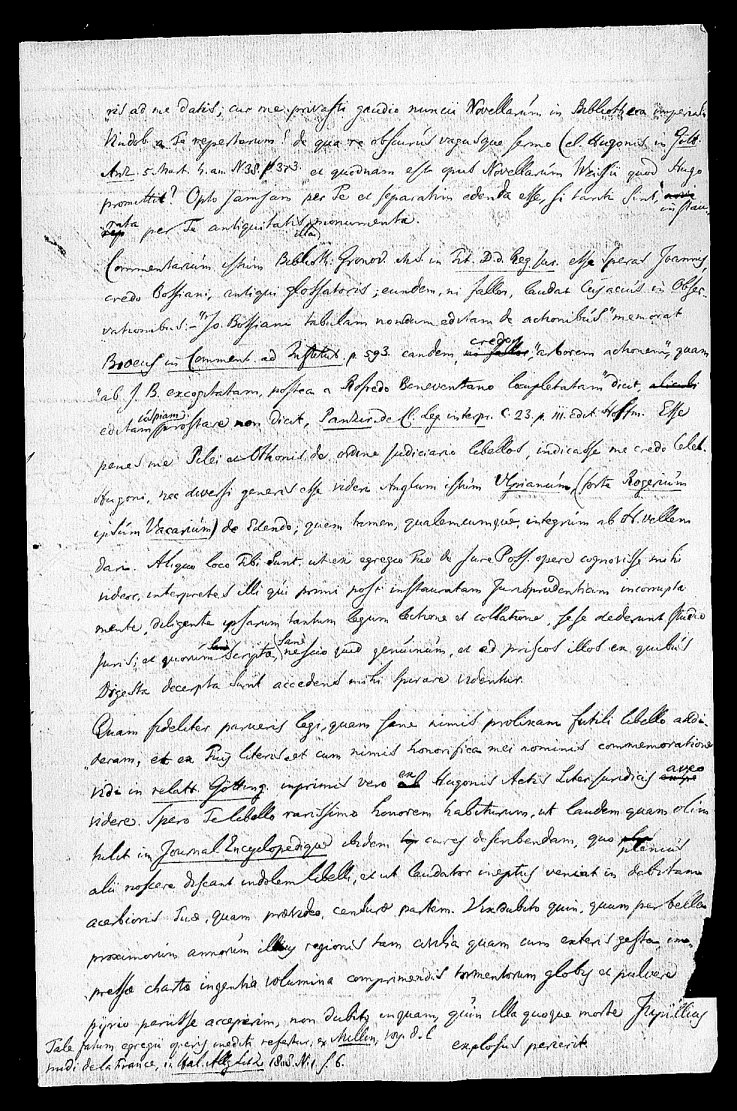 ris ad me datis; cur me privasti gaudio nuncii Novellarum in Bibliotheca imperiali
Vindob. a Te repertarum? de qua re obscurus vagusque sermo (cl. Hugonis in Gött.
Anz. 5. Mart. h. an. N 38. p 373. et quodnam esse opus Novellarum Weissii quod Hugo
promittit? Opto jamjam per Te et separatim edenda esse, si tanti sint,
instaurata per Te antiquitatis illa monumenta.
Commentarium ipsum Biblioth. Gronov. in Tit. D. d. Reg. Jur. esse speras Joannis,
credo Bossiani, antiqui glossatoris; eundem, ni fallor, laudat Cujacius in Obser-
vationibus. "Jo. Bossiani tabulam nondum editam de actionibus" memorat
Broeus in Comment. ad Institut. p. 593. eandem, credo, "arborem actionum", quam
"ab J. B. excogitatam, postea a Rofredo Beneventano completatam" dicit,
editam uspiam prostare non dicit, Panzir. de Cl. leg. interpr. C. 23. p. 111. Edit. Hoffm. Esse
penes me Pilei et Othonis de ordine judiciario libellos, indicasse me credo Celeb.
Hugoni, nec diversi generis esse videri Anglum ipsum Ulpianum, (forte Rogerium
ipsum Vacarium) de Edendo; quem tamen, qualemcumque, integrum ab H. vellem
dari. Aliquo loco Tibi sunt, ut ex egregio Tuo de Jure Poss. opere cognovisse mihi
videor, interpretes illi qui primi post instauratam Jurisprudentiam incorrupta
mente, diligenti ipsarum tantum legum lectione et collatione, sese dederunt studio
juris; et quorum scripta, sane nescio quid genuinum, et ad priscos illos ex quibus
Digesta decerpta sunt accedens mihi spirare videntur.
Quam fideliter parueris legi, quam sane nimis prolixam futili libello addi-
deram, et ex Tuis literis et cum nimis honorifica mei nominis commemoratione
vidi in relatt. Götting. inprimis vero ex Hugonis Actis Liter. juridicis aveo
videre. Spero Te libello rarissimo honorem habiturum, ut laudem quam olim
tulit in Journal Encyclopedique ibidem cures describendam, quo plenius
alii noscere discant indolem libelli, et ut laudator ineptus veniat in debitam
acerbioris Tuae, quam praevideo, censurae partem. Vix dubito quin, quum per bella
proximorum annorum illius regionis tam civilia quam cum exteris gesta im-
pressae chartae ingentia volumina comprimendis tormentorum globis et pulvere
pyrio periisse acceperim, non dubito, inquam, quin illa quoque morte Jupillius
explosus perierit
Tale fatum egregii operis inediti refertur, ex Millin, Voy. d. l.
midi de la France, in Hal. Allg. Litz. 1808. N. 1. S. 6.